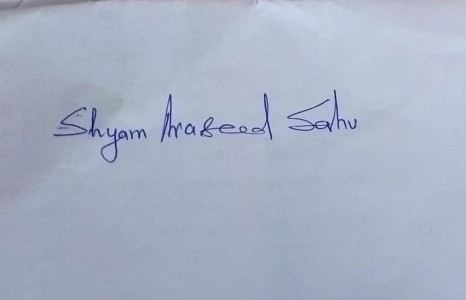 Shyam Praseed Sahu